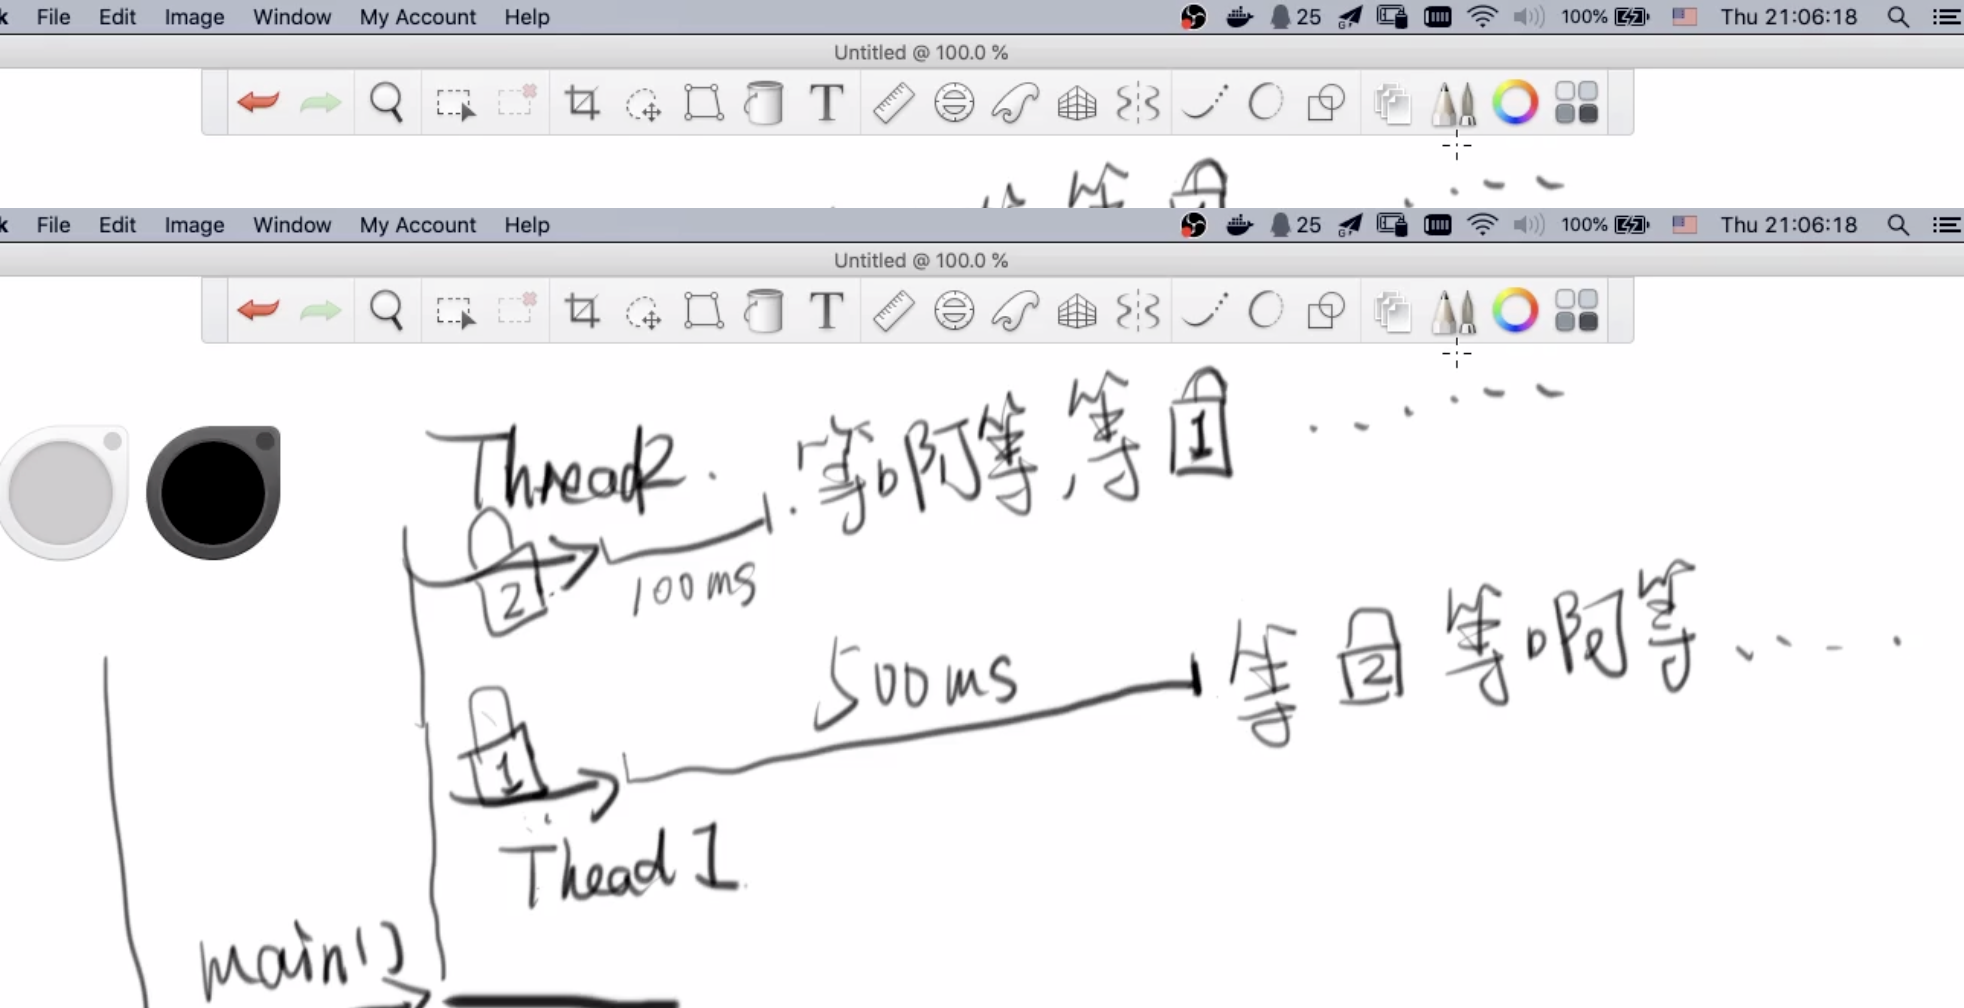 File Edit Image Window My Account Help 25 100% Thu 21:06:18
Untitled @ 100.0 %
T
File Edit Image Window My Account Help 25 100% Thu 21:06:18
Untitled @ 100.0 %
T
Thread2. 等啊等, 等 1 ......
2 100ms
500ms 等 2 等啊等.....
1
Thead 1
main()